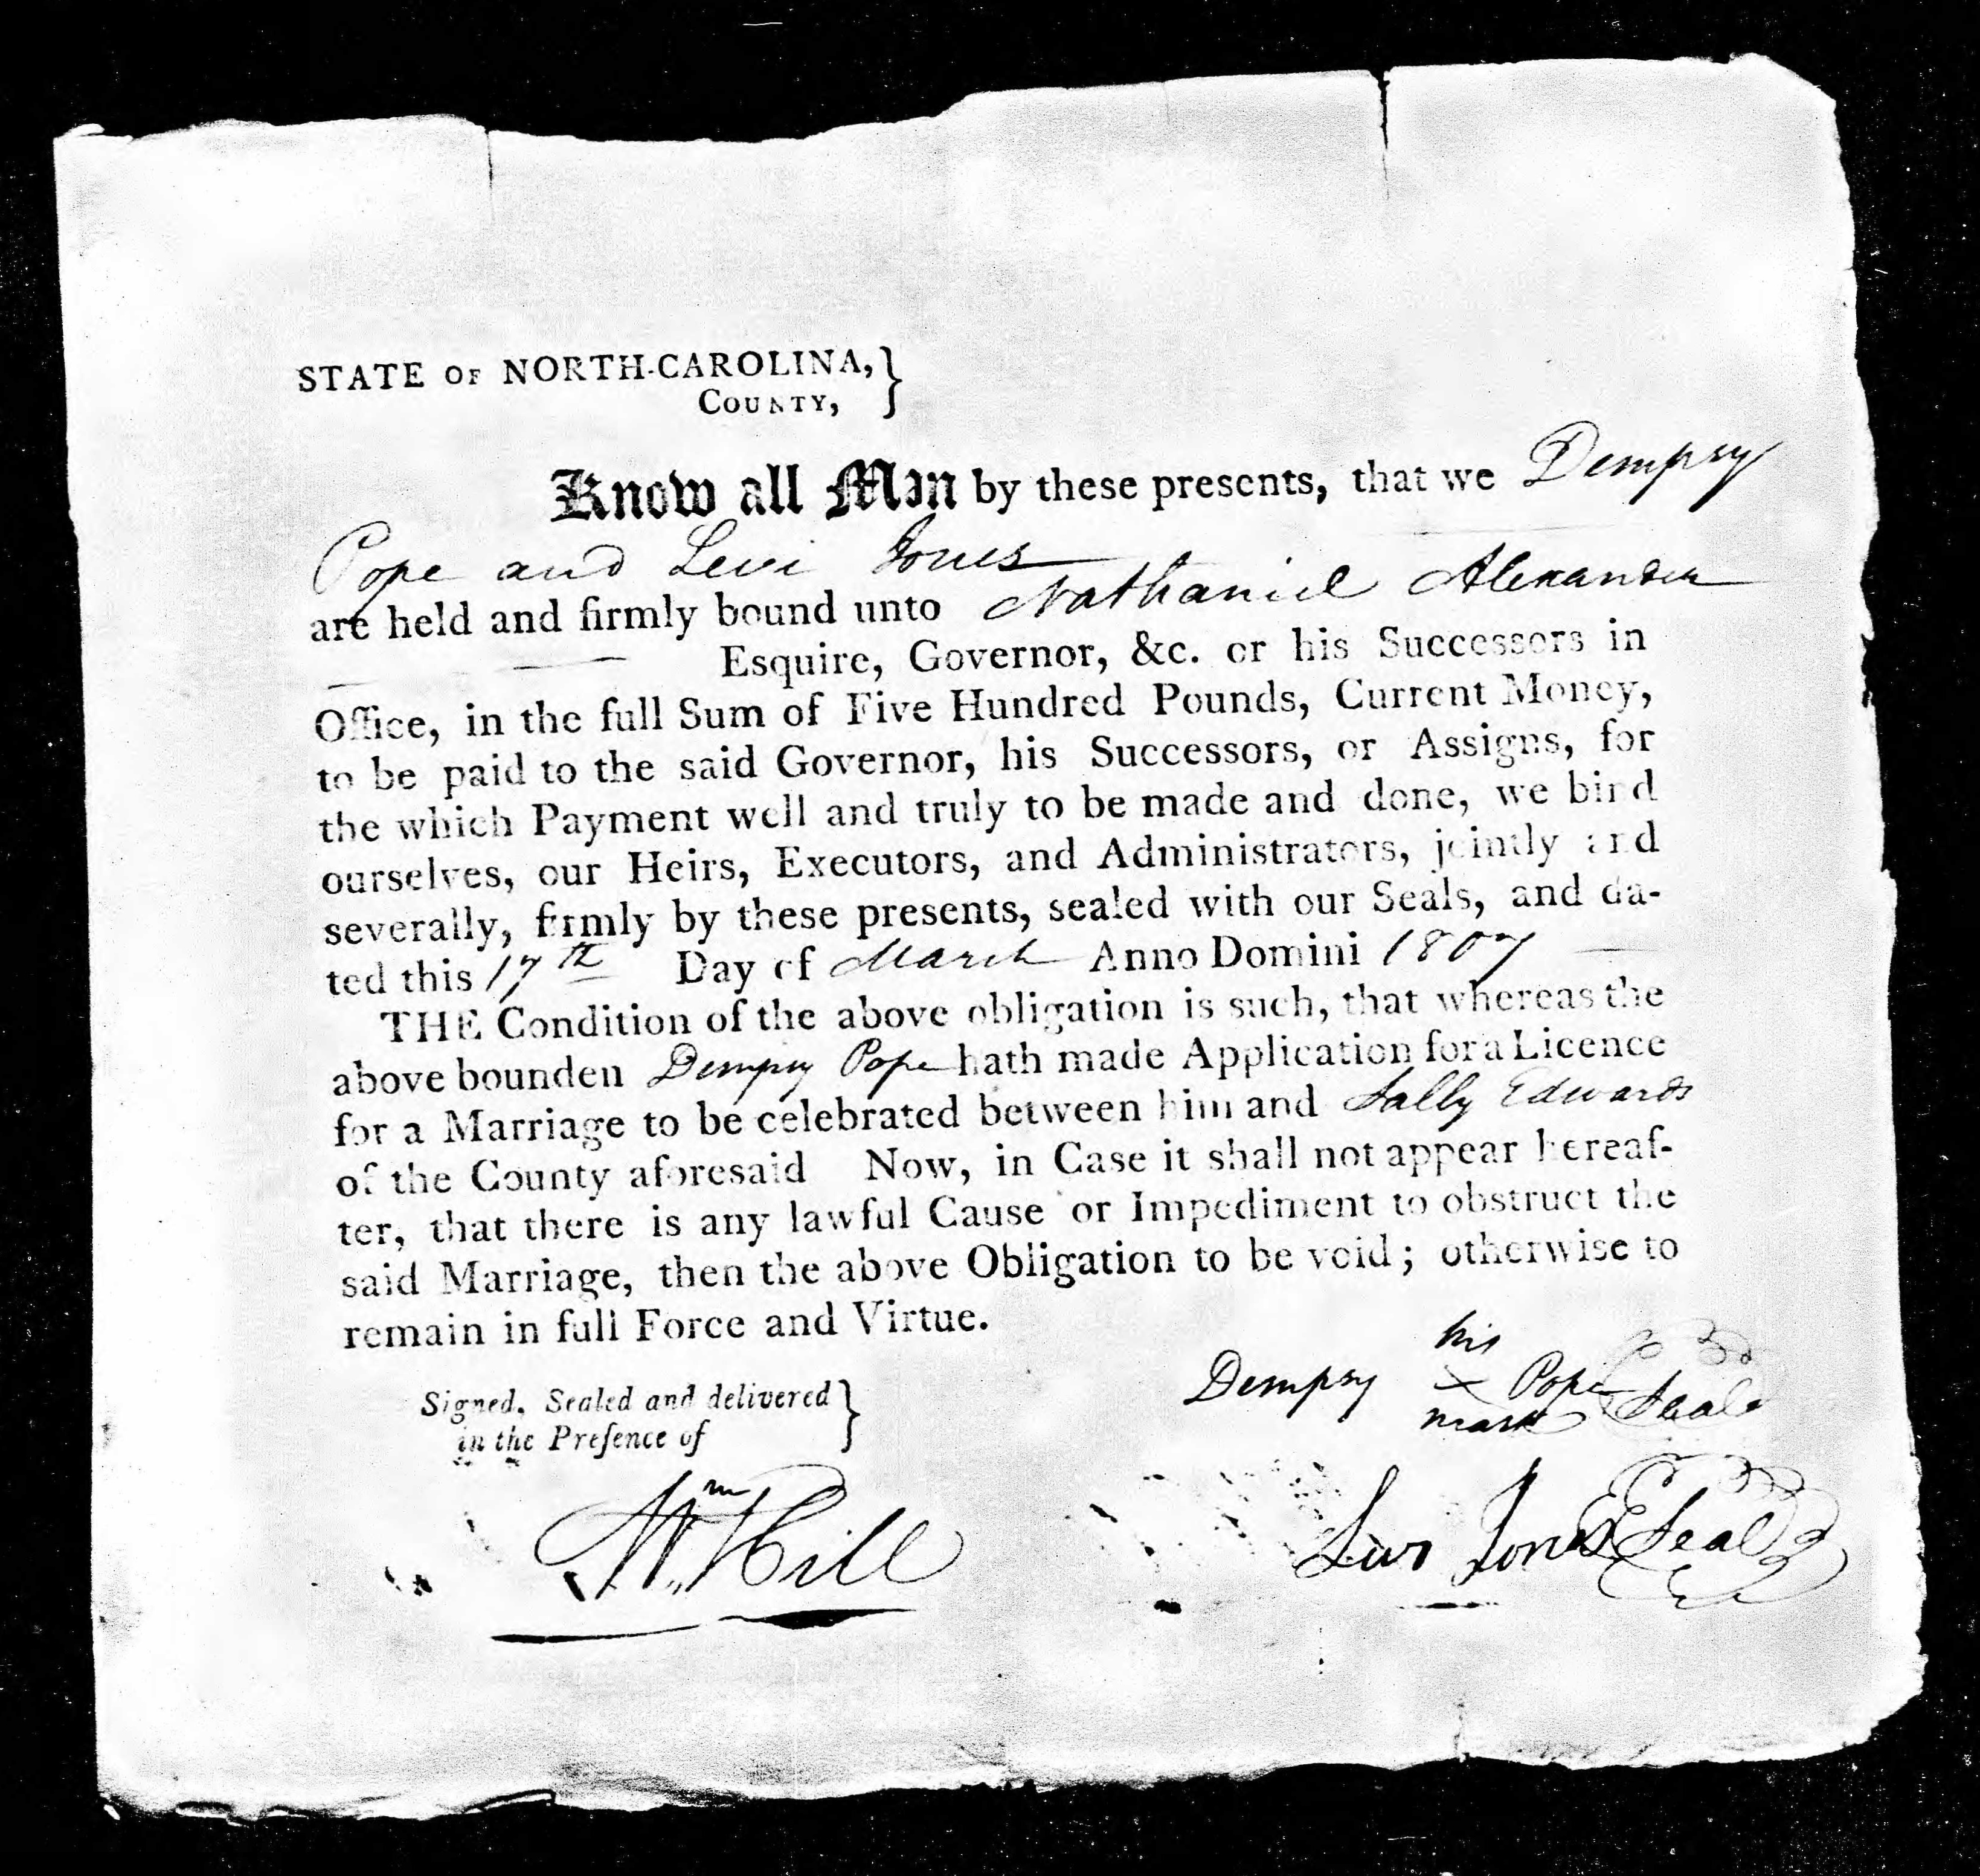 STATE OF NORTH-CAROLINA, }
COUNTY,
Know all Men by these presents, that we Dempsy
Pope and Levi Jones
are held and firmly bound unto Nathaniel Alexander
Esquire, Governor, &c. or his Successors in
Office, in the full Sum of Five Hundred Pounds, Current Money,
to be paid to the said Governor, his Successors, or Assigns, for
the which Payment well and truly to be made and done, we bind
ourselves, our Heirs, Executors, and Administrators, jointly and
severally, firmly by these presents, sealed with our Seals, and da-
ted this 17th Day of March Anno Domini 1807
THE Condition of the above obligation is such, that whereas the
above bounden Dempsy Pope hath made Application for a Licence
for a Marriage to be celebrated between him and Sally Edwards
of the County aforesaid Now, in Case it shall not appear hereaf-
ter, that there is any lawful Cause or Impediment to obstruct the
said Marriage, then the above Obligation to be void; otherwise to
remain in full Force and Virtue.
his
Dempsy X Pope Seal
mark
Signed, Sealed and delivered }
in the Preſence of
Wm Hill
Levi Jones Seal